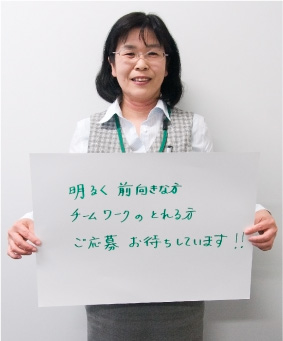 明るく 前向きな方
チームワークのとれる方
ご応募 お待ちしています!!